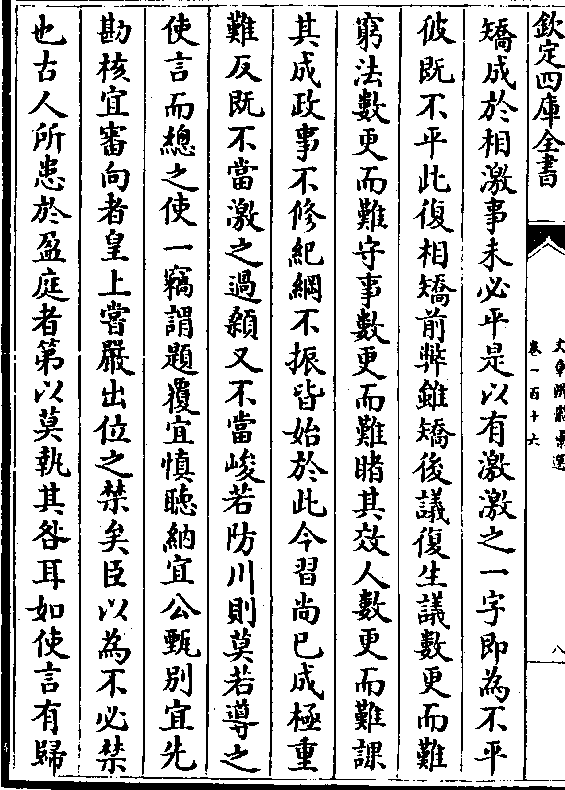 欽定四庫全書
卷一百十六
八
矯成於相激事未必平是以有激激之一字即為不平
彼既不平此復相矯前弊雖矯後議復生議數更而難
窮法數更而難守事數更而難睹其效人數更而難課
其成政事不修紀綱不振皆始於此今習尚已成極重
難反既不當激之過顙又不當峻若防川則莫若導之
使言而總之使一竊謂題覆宜慎聽納宜公甄別宜先
勘核宜審向者皇上嘗嚴出位之禁矣臣以為不必禁
也古人所患於盈庭者第以莫執其咎耳如使言有歸